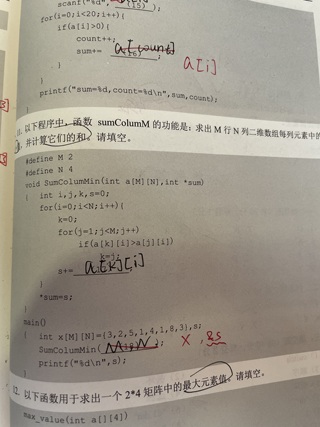 scanf("%d", (15) );
for(i=0;i<20;i++){
if(a[i]>0){
count++;
sum+= a[count] (16) ;
a[i]
}
}
printf("sum=%d,count=%d\n",sum,count);
}
11. 以下程序中，函数 sumColumM 的功能是：求出 M 行 N 列二维数组每列元素中的
，并计算它们的和。请填空。
#define M 2
#define N 4
void SumColumMin(int a[M][N],int *sum)
{ int i,j,k,s=0;
for(i=0;i<N;i++){
k=0;
for(j=1;j<M;j++)
if(a[k][i]>a[j][i])
k=j;
s+= a[k][i]
}
*sum=s;
}
main()
{ int x[M][N]={3,2,5,1,4,1,8,3},s;
SumColumMin( ); x , &s
printf("%d\n",s);
}
12. 以下函数用于求出一个 2*4 矩阵中的最大元素值，请填空。
max_value(int a[][4])